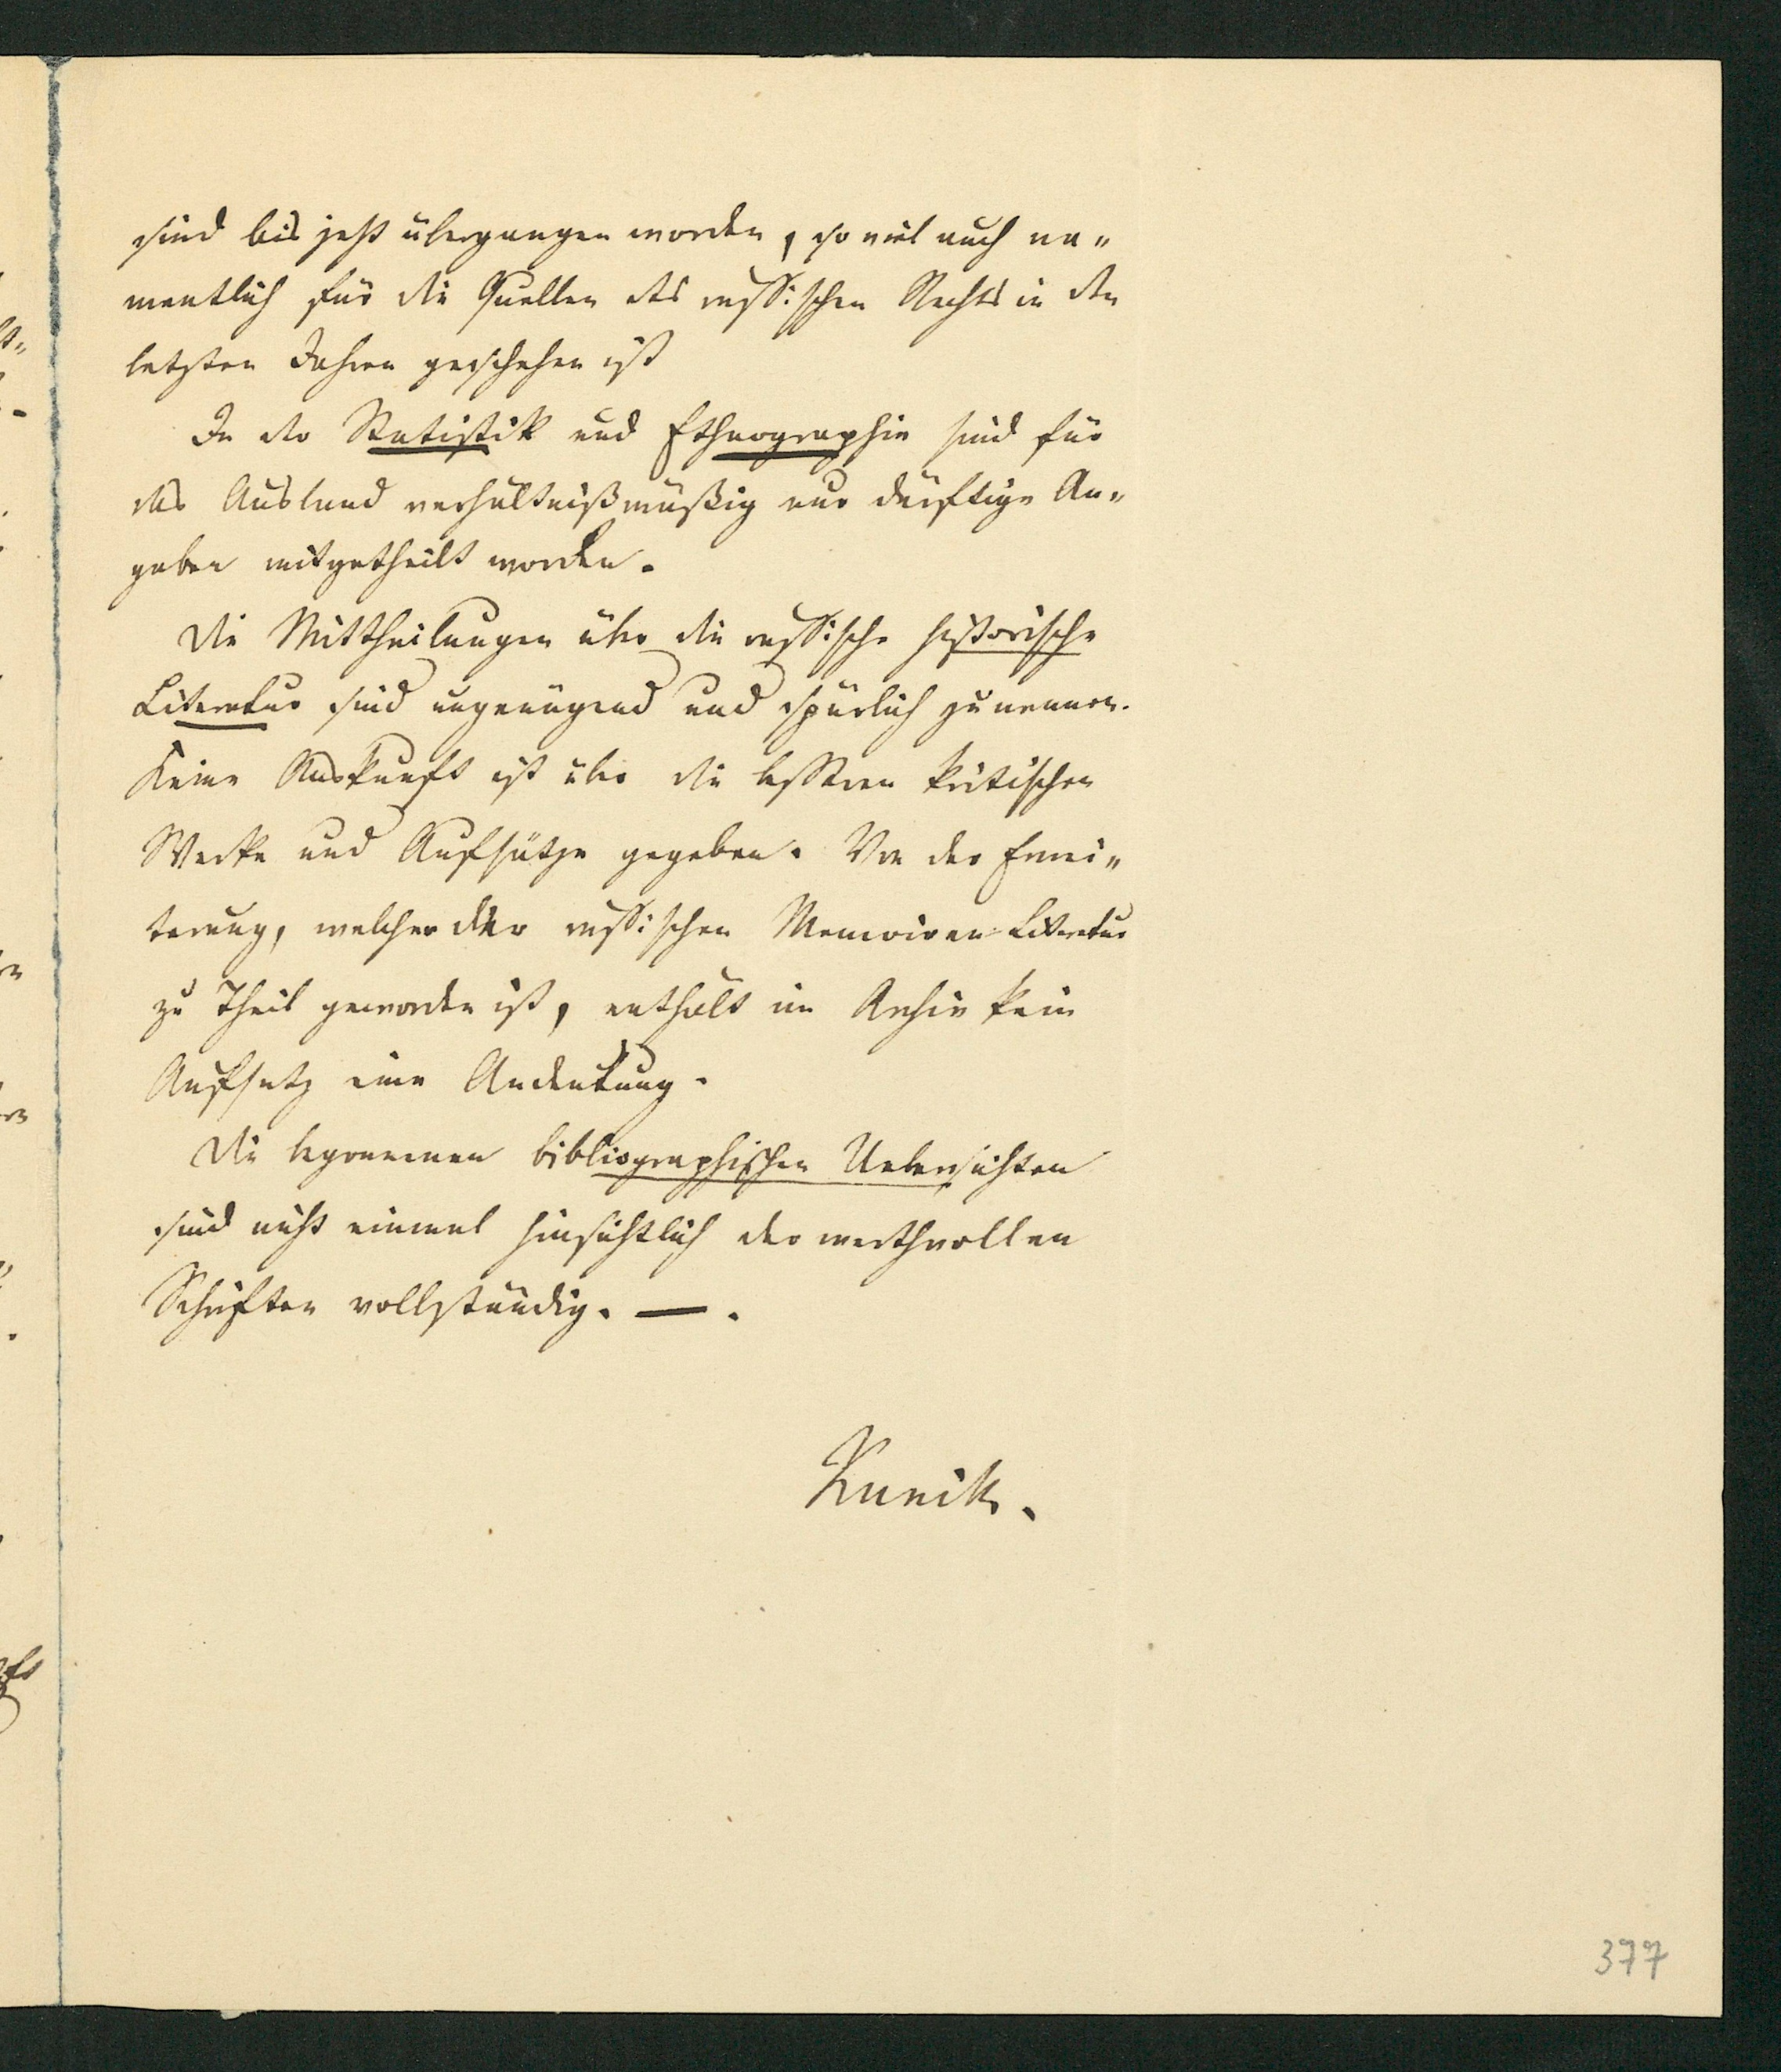 sind bis jetzt übergangen worden, so viel auch na„
mentlich für die Quellen des russischen Rechts in den
letzten Jahren geschehen ist
In der Statistik und Ethnographie sind für
das Ausland verhältnißmäßig nur dürftige An„
gaben mitgetheilt worden.
Die Mittheilungen über die russische historische
Literatur sind ungenügend und spärlich zu nennen.
Keine Auskunft ist über die besseren kritischen
Werke und Aufsätze gegeben. Von der Erwei„
terung, welche der russischen Memoiren-Literatur
zu Theil geworden ist, enthält im Archiv kein
Aufsatz eine Andeutung.
Die begonnenen bibliographischen Uebersichten
sind nicht einmal hinsichtlich der werthvollen
Schriften vollständig. — .
Kunik.
377